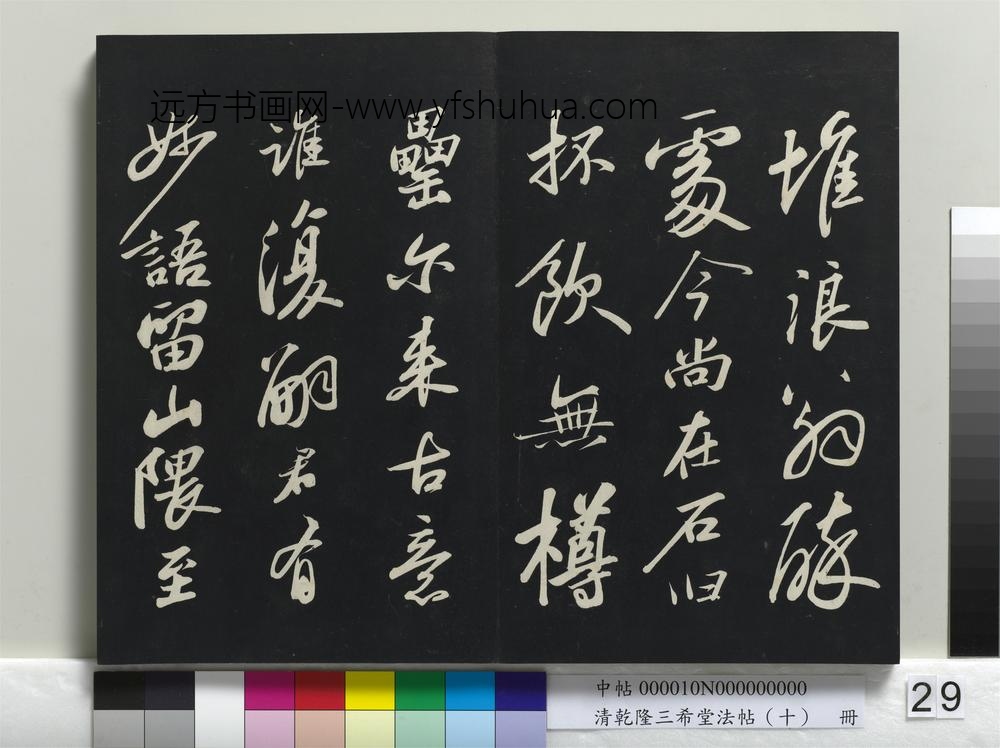 远方书画网-www.yfshuhua.com
堆浪翁醉
處今尚在石臼
抔飲無樽
罍尔来古意
誰復嗣君有
妙語留山隈至
中帖 000010N000000000
清乾隆三希堂法帖（十） 冊
29